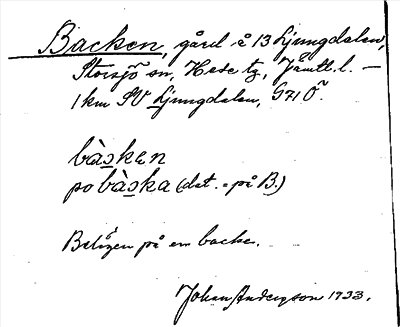 Backen, gård å 13 Ljungdalen,
Storsjö sn, Hede tg, Jämtl. l. —
1 km SV Ljungdalen, G71Ö.
bàsken
po bàska (dat. = på B.)
Belägen på en backe.
Johan Anderzson 1933.